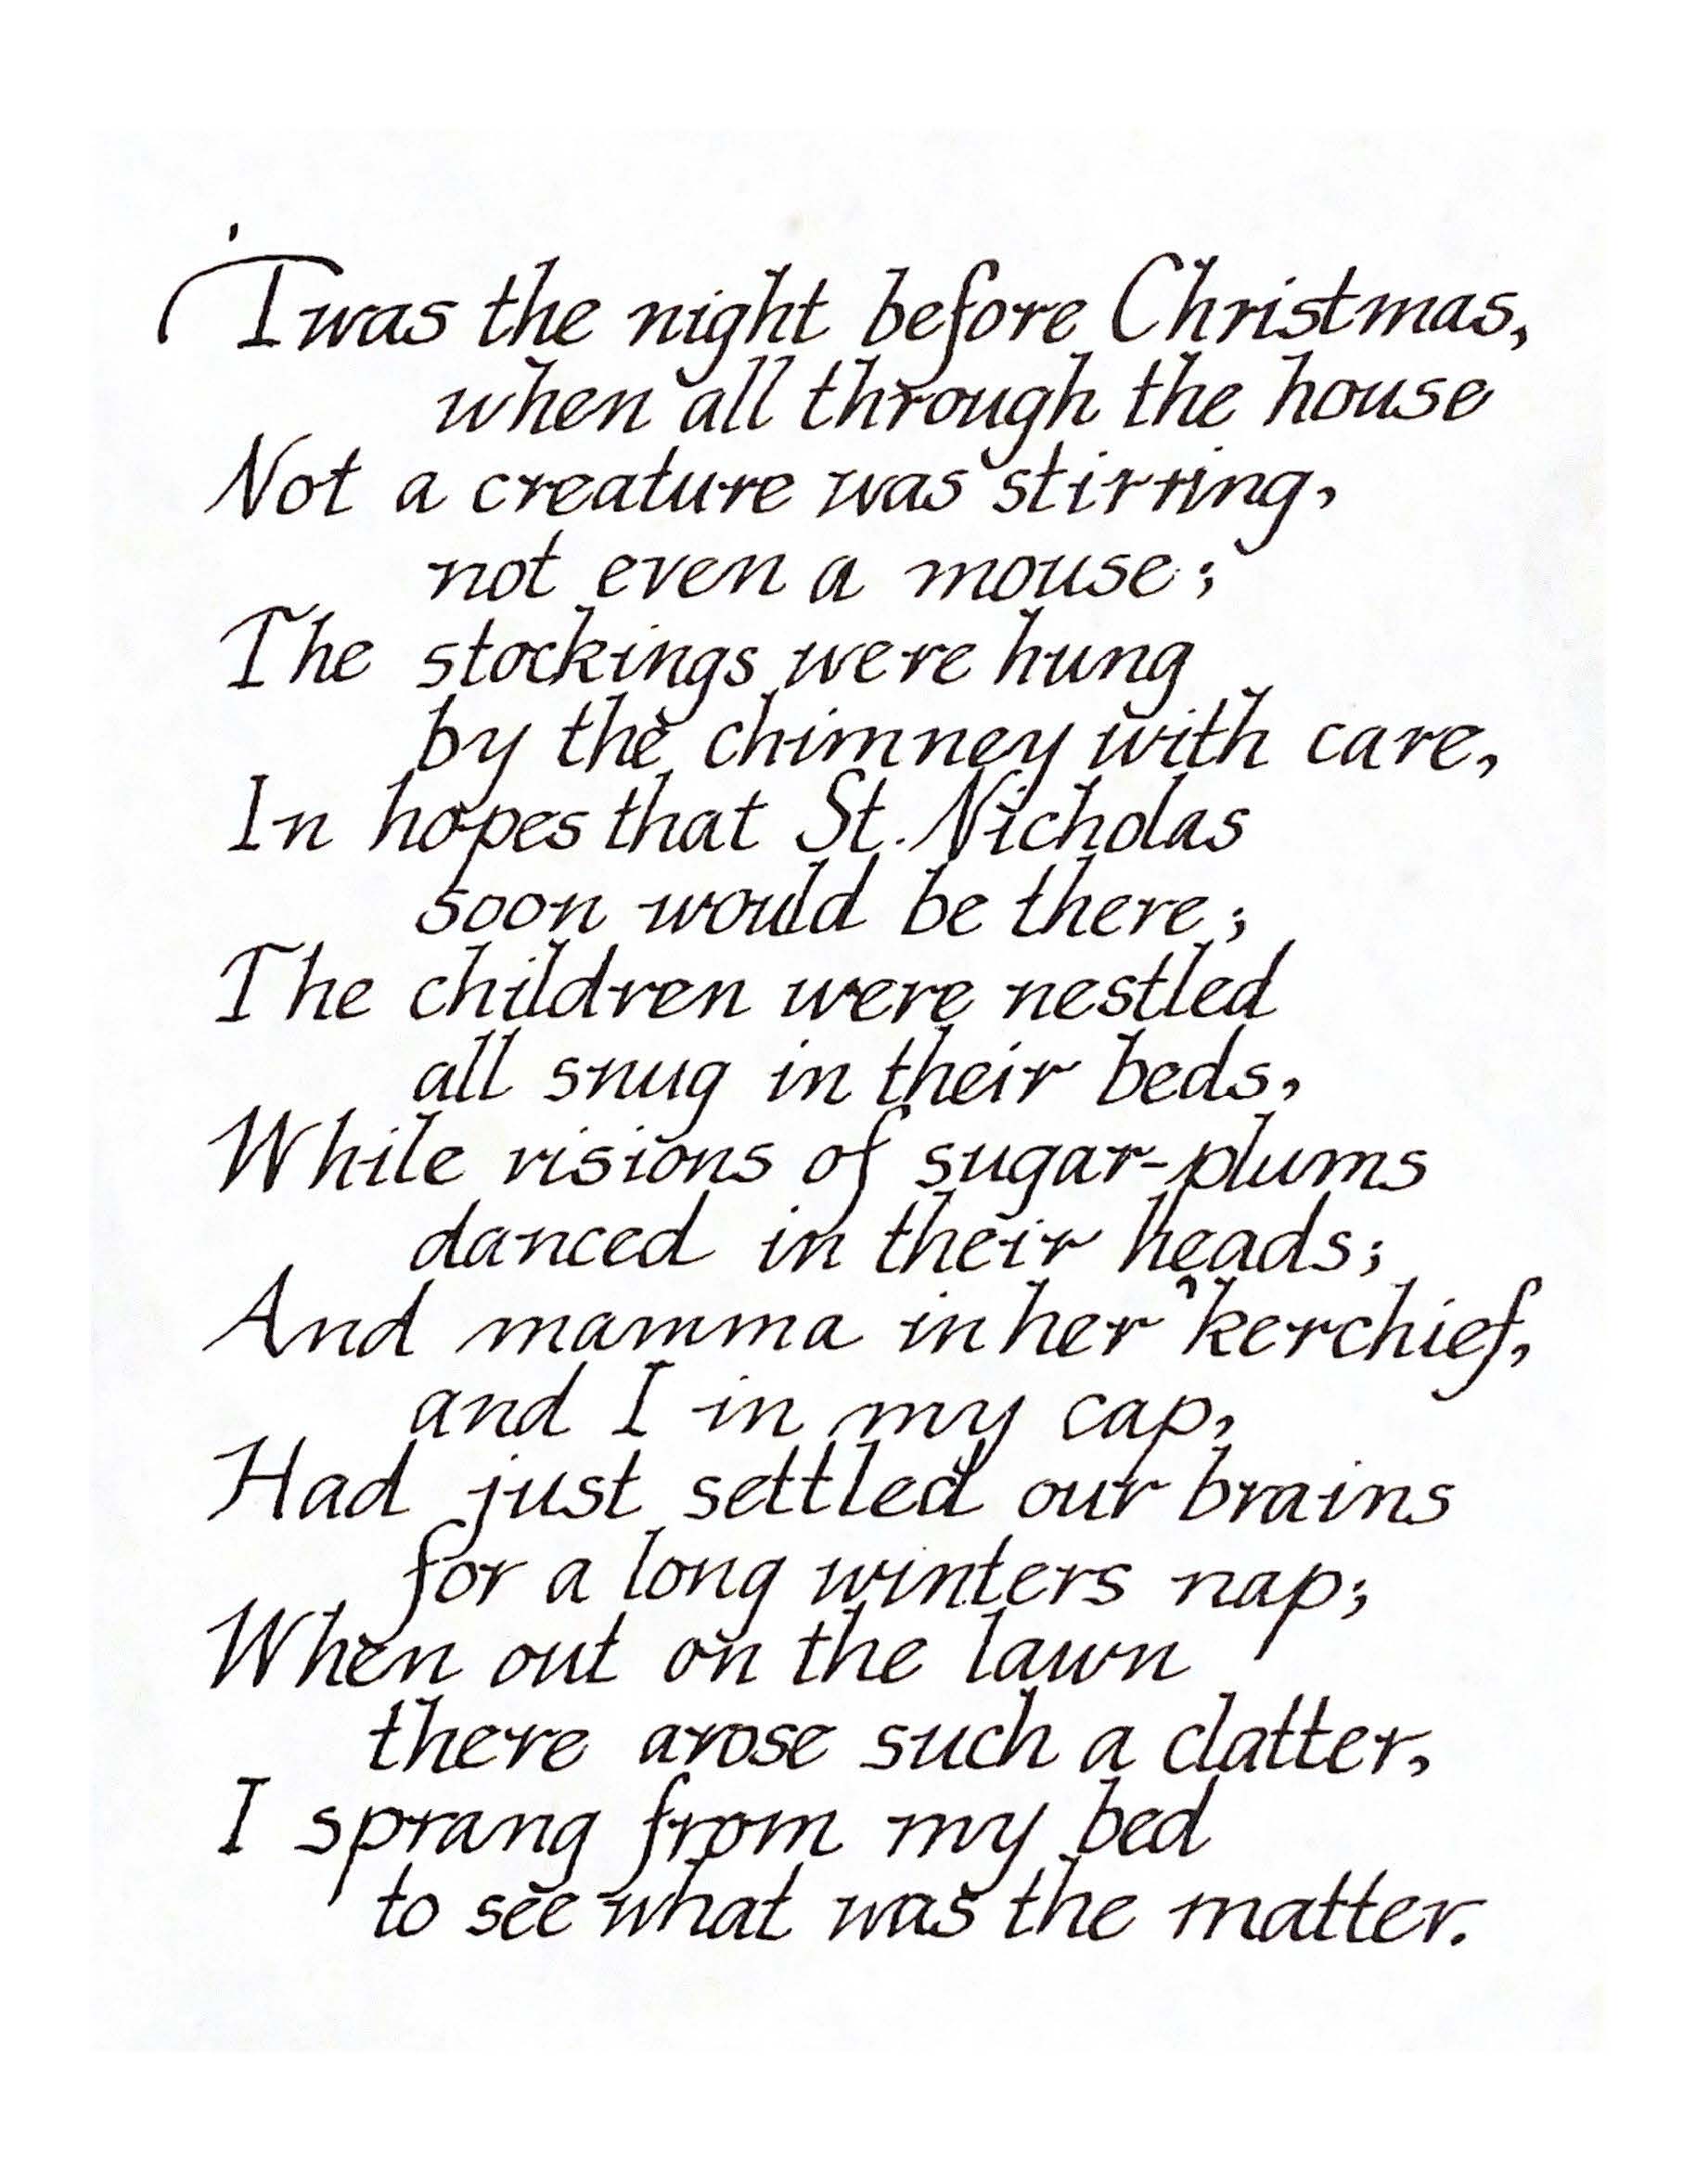 'Twas the night before Christmas,
when all through the house
Not a creature was stirring,
not even a mouse;
The stockings were hung
by the chimney with care,
In hopes that St. Nicholas
soon would be there;
The children were nestled
all snug in their beds,
While visions of sugar-plums
danced in their heads;
And mamma in her 'kerchief,
and I in my cap,
Had just settled our brains
for a long winters nap;
When out on the lawn
there arose such a clatter,
I sprang from my bed
to see what was the matter.